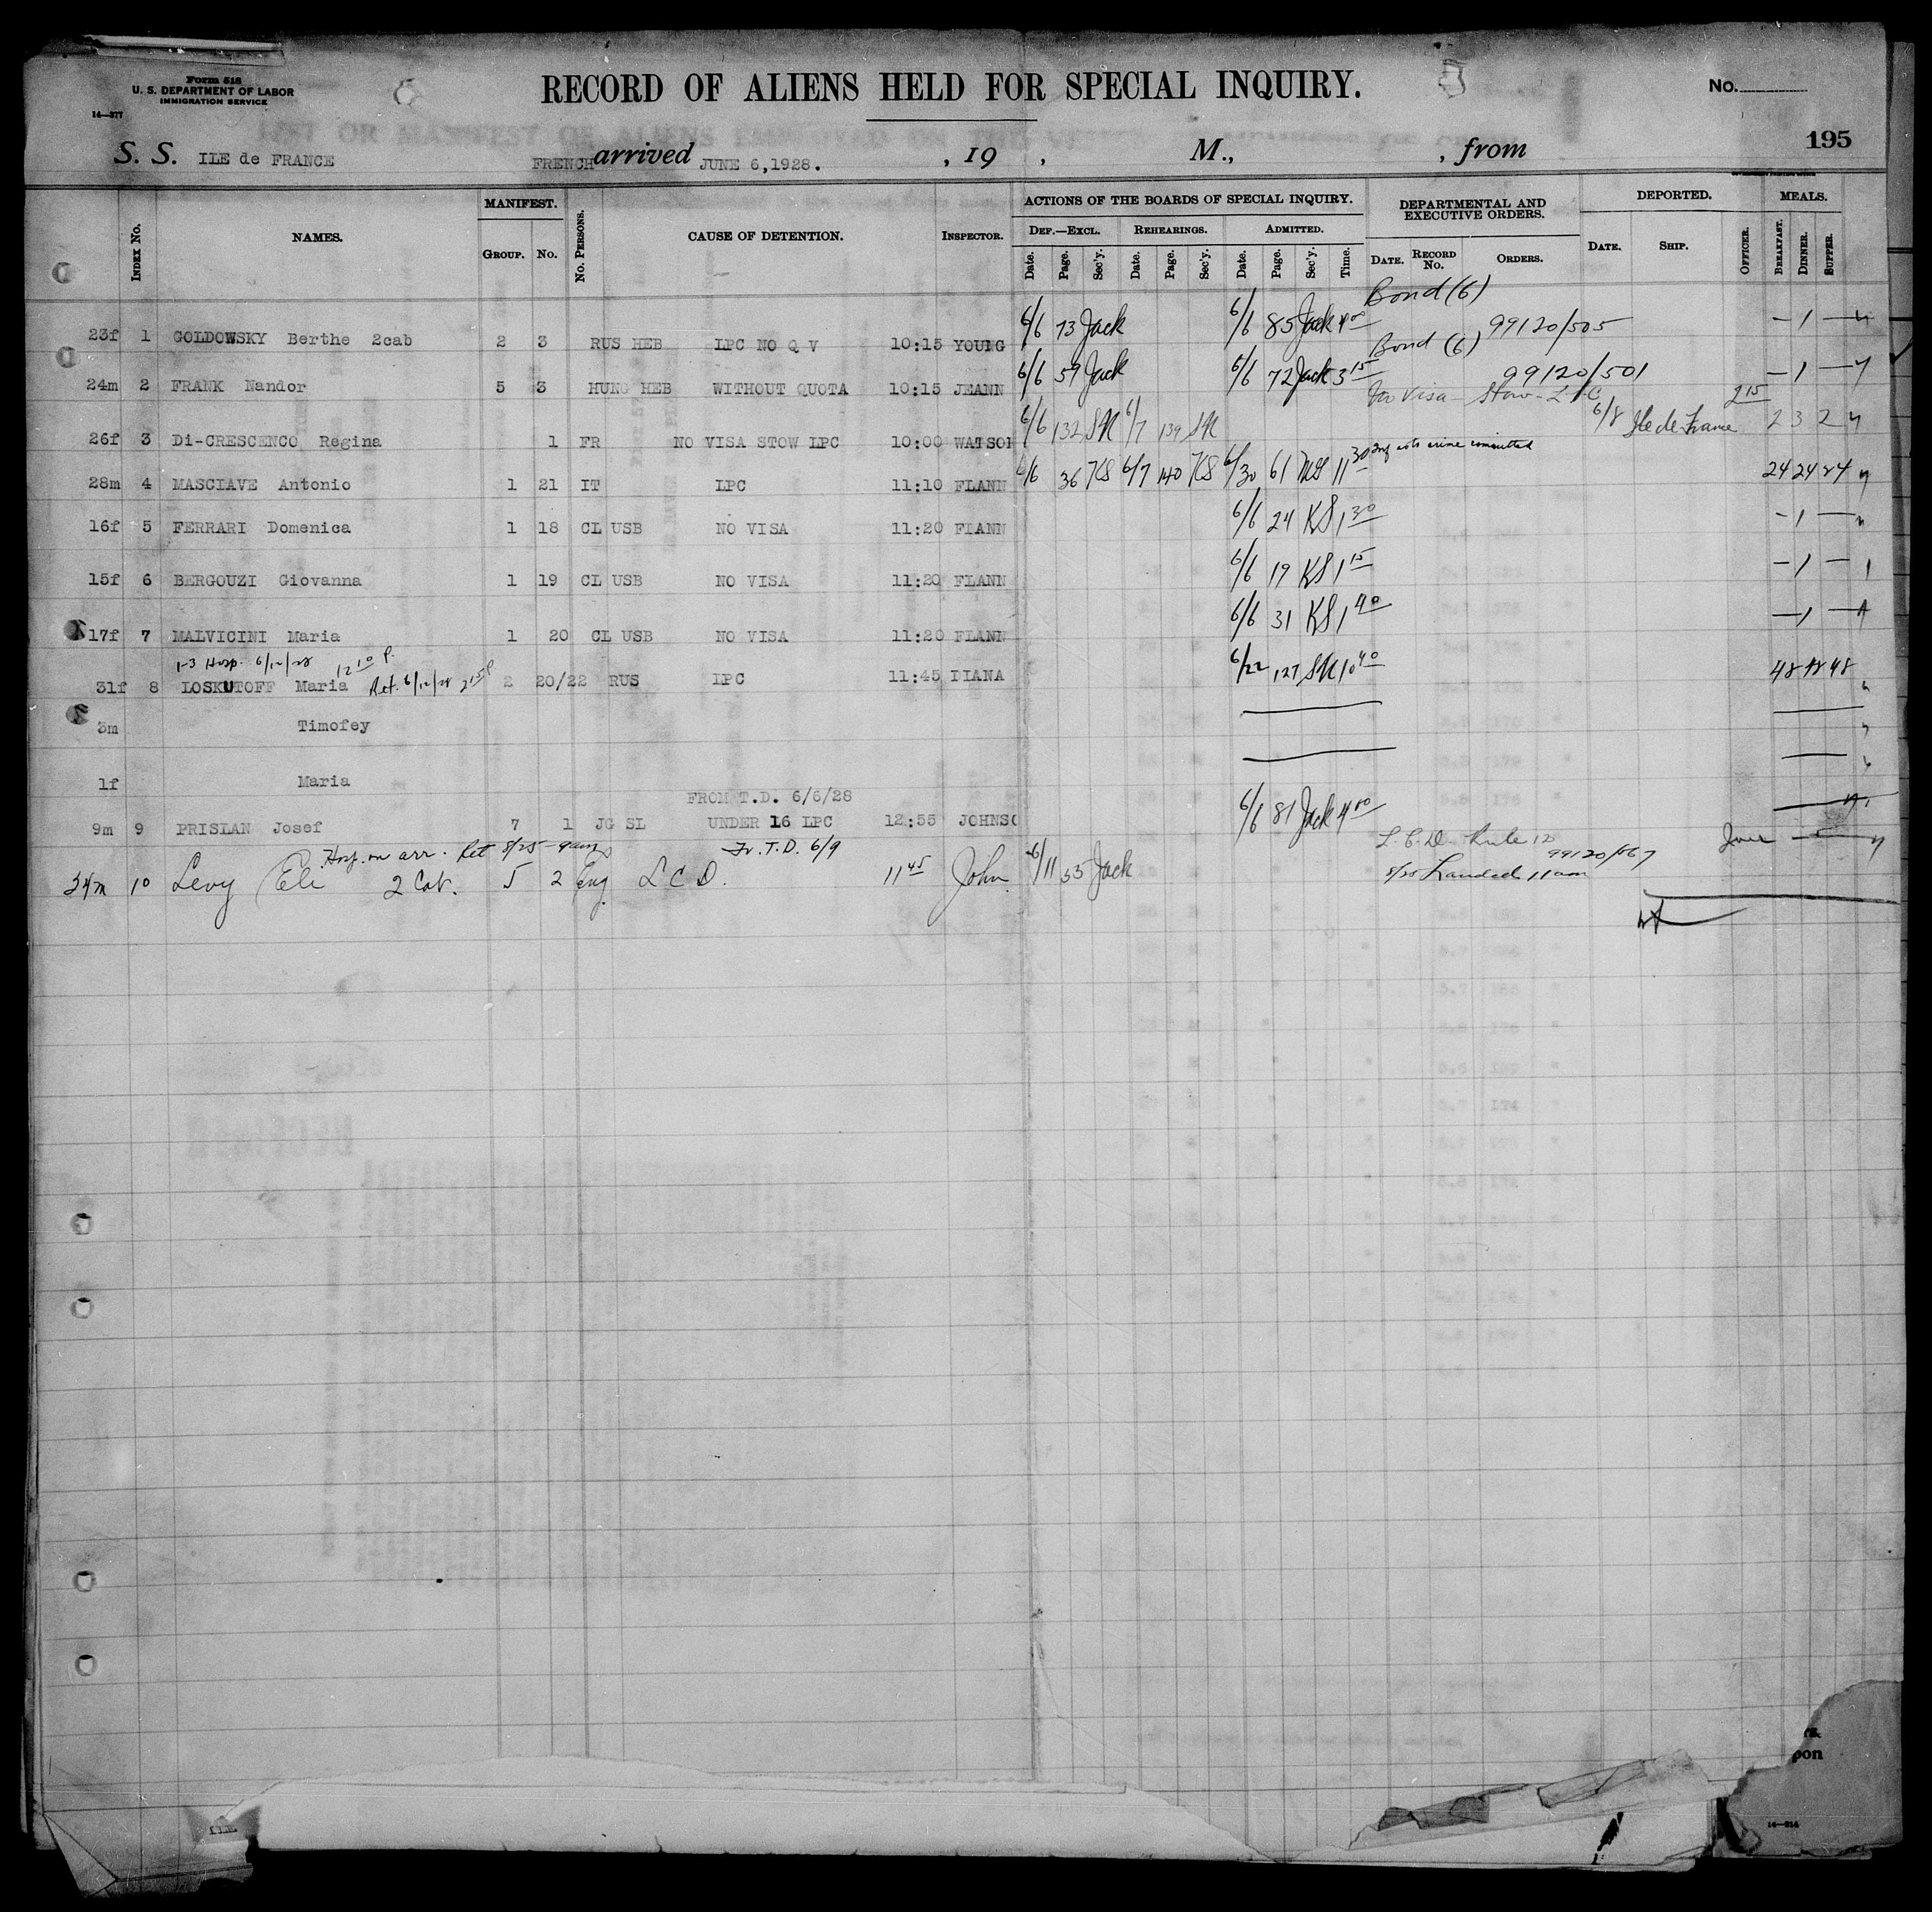 Form 518
U. S. DEPARTMENT OF LABOR
IMMIGRATION SERVICE
14—377
RECORD OF ALIENS HELD FOR SPECIAL INQUIRY.
No.
195
S. S. ILE de FRANCE FRENCH arrived JUNE 6,1928. , 19 , M., , from
INDEX No. NAMES. MANIFEST. GROUP. No. No. PERSONS. CAUSE OF DETENTION. INSPECTOR. ACTIONS OF THE BOARDS OF SPECIAL INQUIRY. DEF.—EXCL. REHEARINGS. ADMITTED. DEPARTMENTAL AND EXECUTIVE ORDERS. DEPORTED. MEALS.
Date. Page. Sec'y. Date. Page. Sec'y. Date. Page. Sec'y. Time. DATE. RECORD No. ORDERS. DATE. SHIP. OFFICER. BREAKFAST. DINNER. SUPPER.
Bond (6)
23f 1 GOLDOWSKY Berthe 2cab 2 3 RUS HEB LPC NO Q V 10:15 YOUNG 6/6 73 Jack 6/6 85 Jack 4 00 99120/505 — 1 —
Bond (6)
24m 2 FRANK Nandor 5 3 HUNG HEB WITHOUT QUOTA 10:15 JEANN 6/6 59 Jack 6/6 72 Jack 3 15 99120/501 — 1 —
No Visa - Stow - L P C
26f 3 Di-CRESCENCO Regina 1 FR NO VISA STOW LPC 10:00 WATSON 6/6 132 SM 6/7 139 SM 6/8 Ile de France 2 15 2 3 2
28m 4 MASCIAVE Antonio 1 21 IT LPC 11:10 FLANN 6/6 36 KS 6/7 140 KS 6/30 61 11 30 crime committed 24 24 24
16f 5 FERRARI Domenica 1 18 CL USB NO VISA 11:20 FLANN 6/6 24 KS 1 30 — 1 —
15f 6 BERGOUZI Giovanna 1 19 CL USB NO VISA 11:20 FLANN 6/6 19 KS 1 15 — 1 —
17f 7 MALVICINI Maria 1 20 CL USB NO VISA 11:20 FLANN 6/6 31 KS 1 40 — 1 —
1-3 Hosp. 6/12/28 12 10 P.
31f 8 LOSKUTOFF Maria Ret. 6/12/28 2 15 P 2 20/22 RUS LPC 11:45 DIANA 6/22 127 SM 10 40 48 48 48
3m Timofey
1f Maria
FROM T.D. 6/6/28
9m 9 PRISLAN Josef 7 1 JG SL UNDER 16 LPC 12:55 JOHNSO 6/6 81 Jack 4 00
Hosp on arr. Ret 8/25 - 9am Fr. T.D. 6/9 L.C.D. Rule 12
34m 10 Levy Eli 2 Cab. 5 2 Eng L C D. 11 45 John 6/11 53 Jack 99120/567
8/25 Landed 11am
14—214